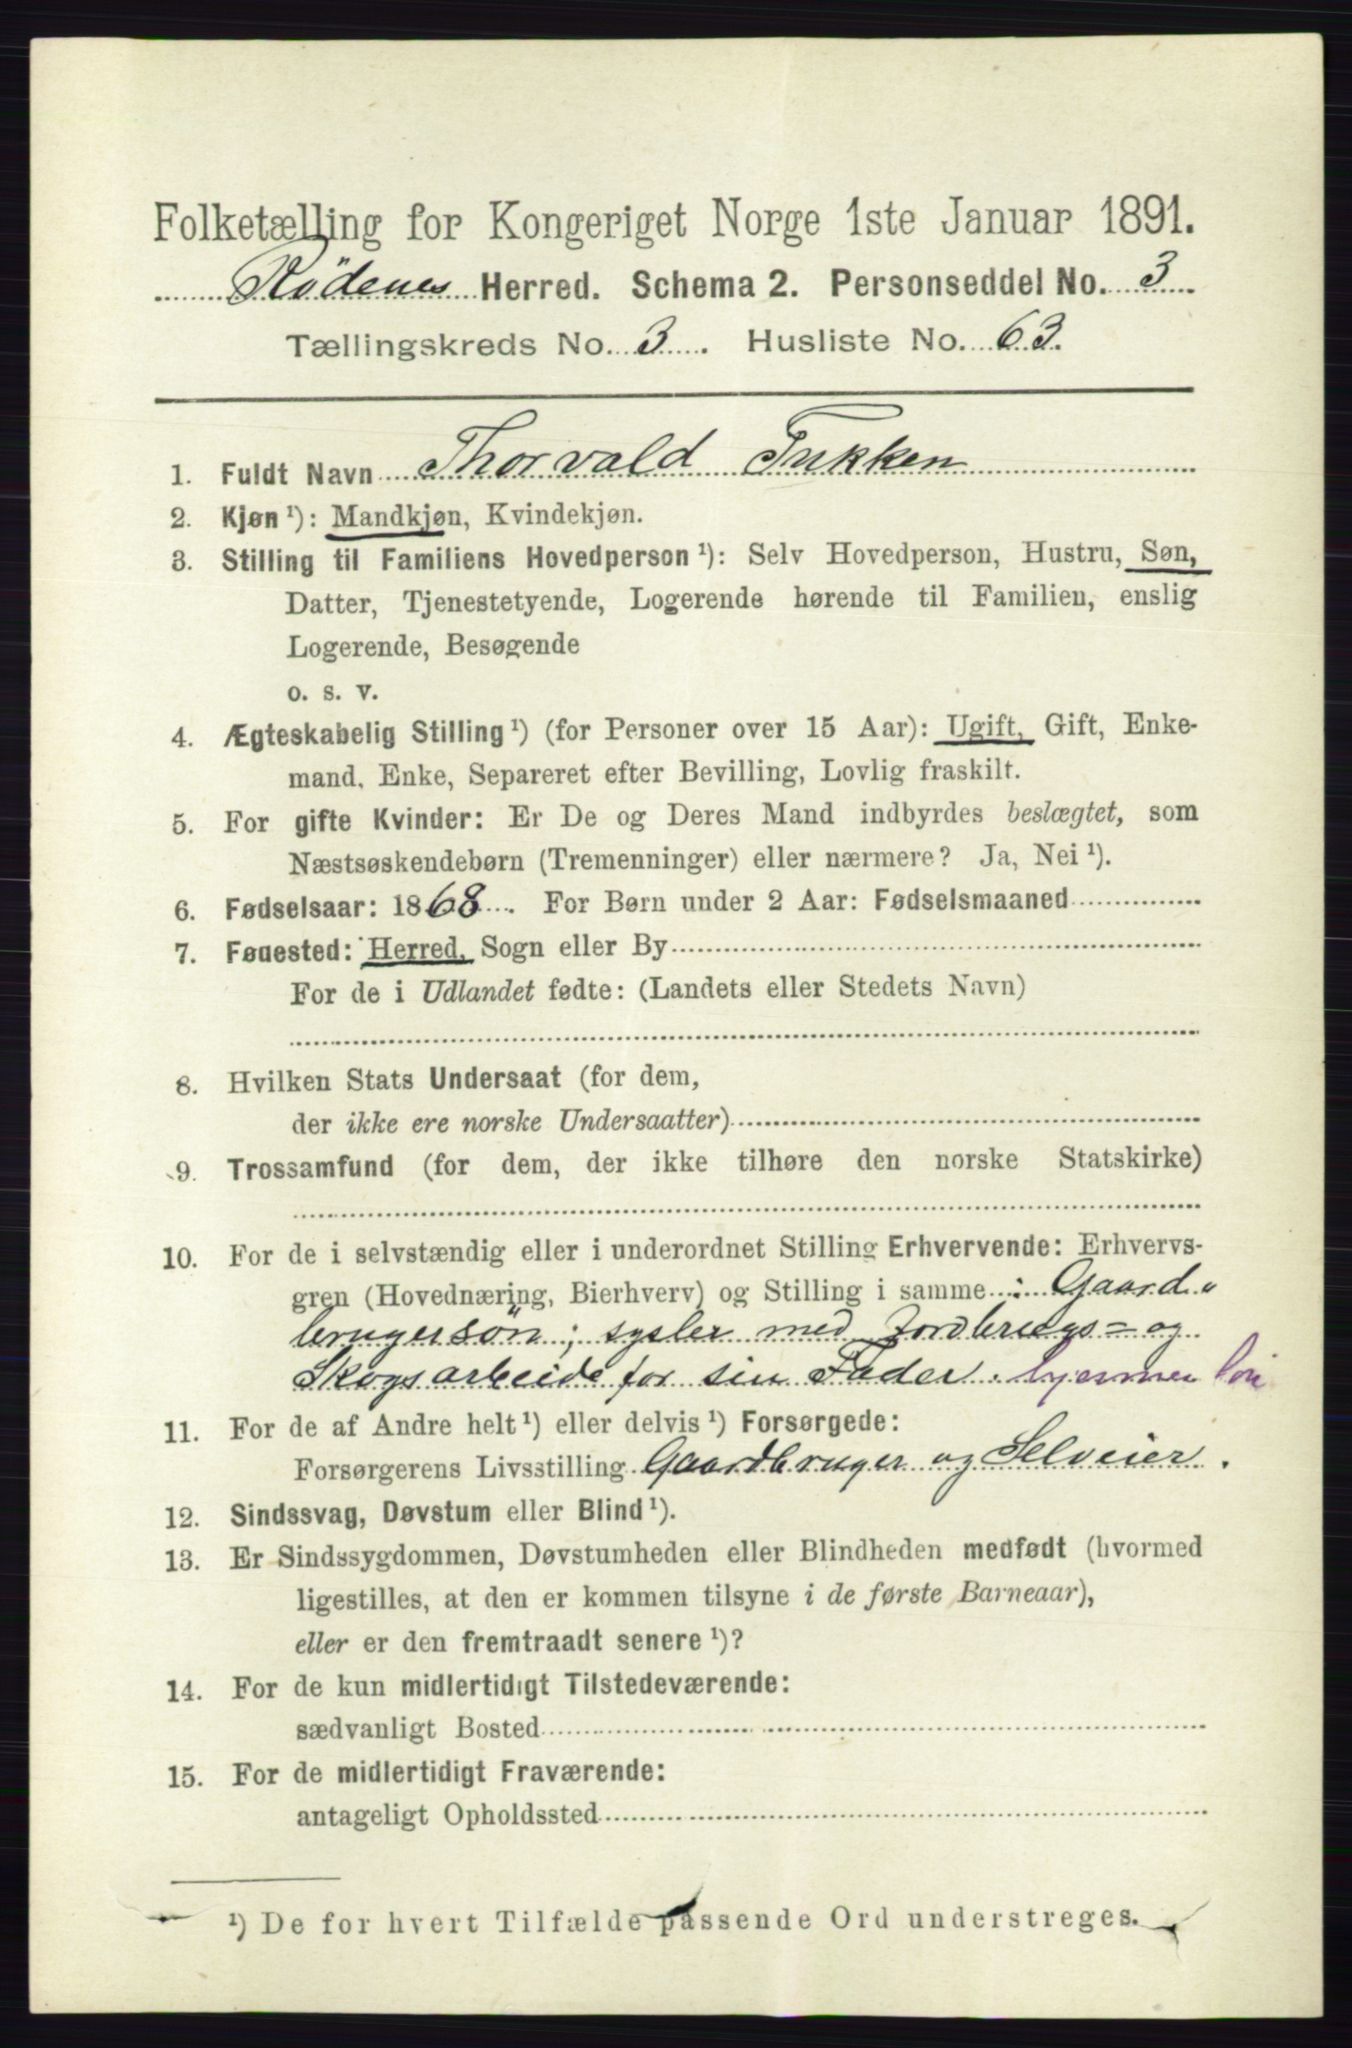 Folketælling for Kongeriget Norge 1ste Januar 1891.
Rödenes Herred. Schema 2. Personseddel No. 3
Tællingskreds No. 3. Husliste No. 63.
1. Fuldt Navn Thorvald Tukken
2. Kjøn ¹): Mandkjøn, Kvindekjøn.
3. Stilling til Familiens Hovedperson ¹): Selv Hovedperson, Hustru, Søn,
Datter, Tjenestetyende, Logerende hørende til Familien, enslig
Logerende, Besøgende
o. s. v.
4. Ægteskabelig Stilling ¹) (for Personer over 15 Aar): Ugift, Gift, Enke-
mand, Enke, Separeret efter Bevilling, Lovlig fraskilt.
5. For gifte Kvinder: Er De og Deres Mand indbyrdes beslægtet, som
Næstsøskendebørn (Tremenninger) eller nærmere? Ja, Nei ¹).
6. Fødselsaar: 1868. For Børn under 2 Aar: Fødselsmaaned
7. Føuested: Herred, Sogn eller By
For de i Udlandet fødte: (Landets eller Stedets Navn)
8. Hvilken Stats Undersaat (for dem,
der ikke ere norske Undersaatter)
9. Trossamfund (for dem, der ikke tilhøre den norske Statskirke)
10. For de i selvstændig eller i underordnet Stilling Erhvervende: Erhvervs-
gren (Hovednæring, Bierhverv) og Stilling i samme : Gaard„
brugersön; sysler med Jordbrugs= og
Skogsarbeide for sin Fader. hjemme
11. For de af Andre helt ¹) eller delvis ¹) Forsørgede:
Forsørgerens Livsstilling Gaardbruger og Selveier.
12. Sindssvag, Døvstum eller Blind ¹).
13. Er Sindssygdommen, Døvstumheden eller Blindheden medfødt (hvormed
ligestilles, at den er kommen tilsyne i de første Barneaar),
eller er den fremtraadt senere ¹)?
14. For de kun midlertidigt Tilstedeværende:
sædvanligt Bosted
15. For de midlertidigt Fraværende:
antageligt Opholdssted
¹) De for hvert Tilfælde passende Ord understreges.